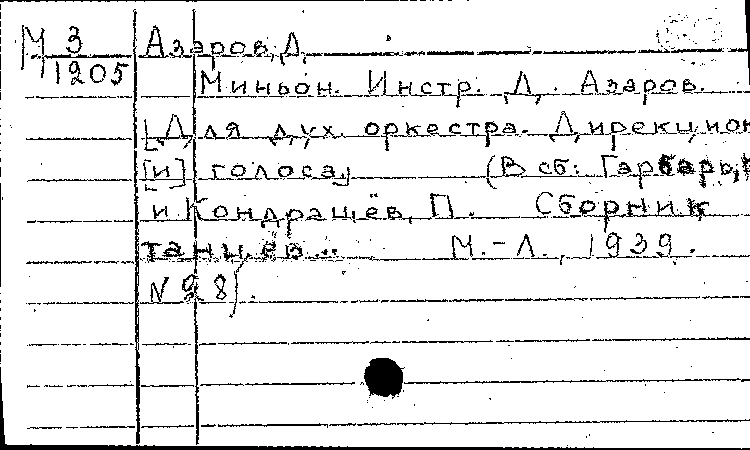 М 3 Азаров, Д.
1205 Миньон. Инстр. Д. Азаров.
[Для дух. оркестра. Дирекцион
[и] голоса] (В сб: Гарбарь,
и Кондрашёв, П. Сборник
танцев... М.-Л., 1939.
N 28).